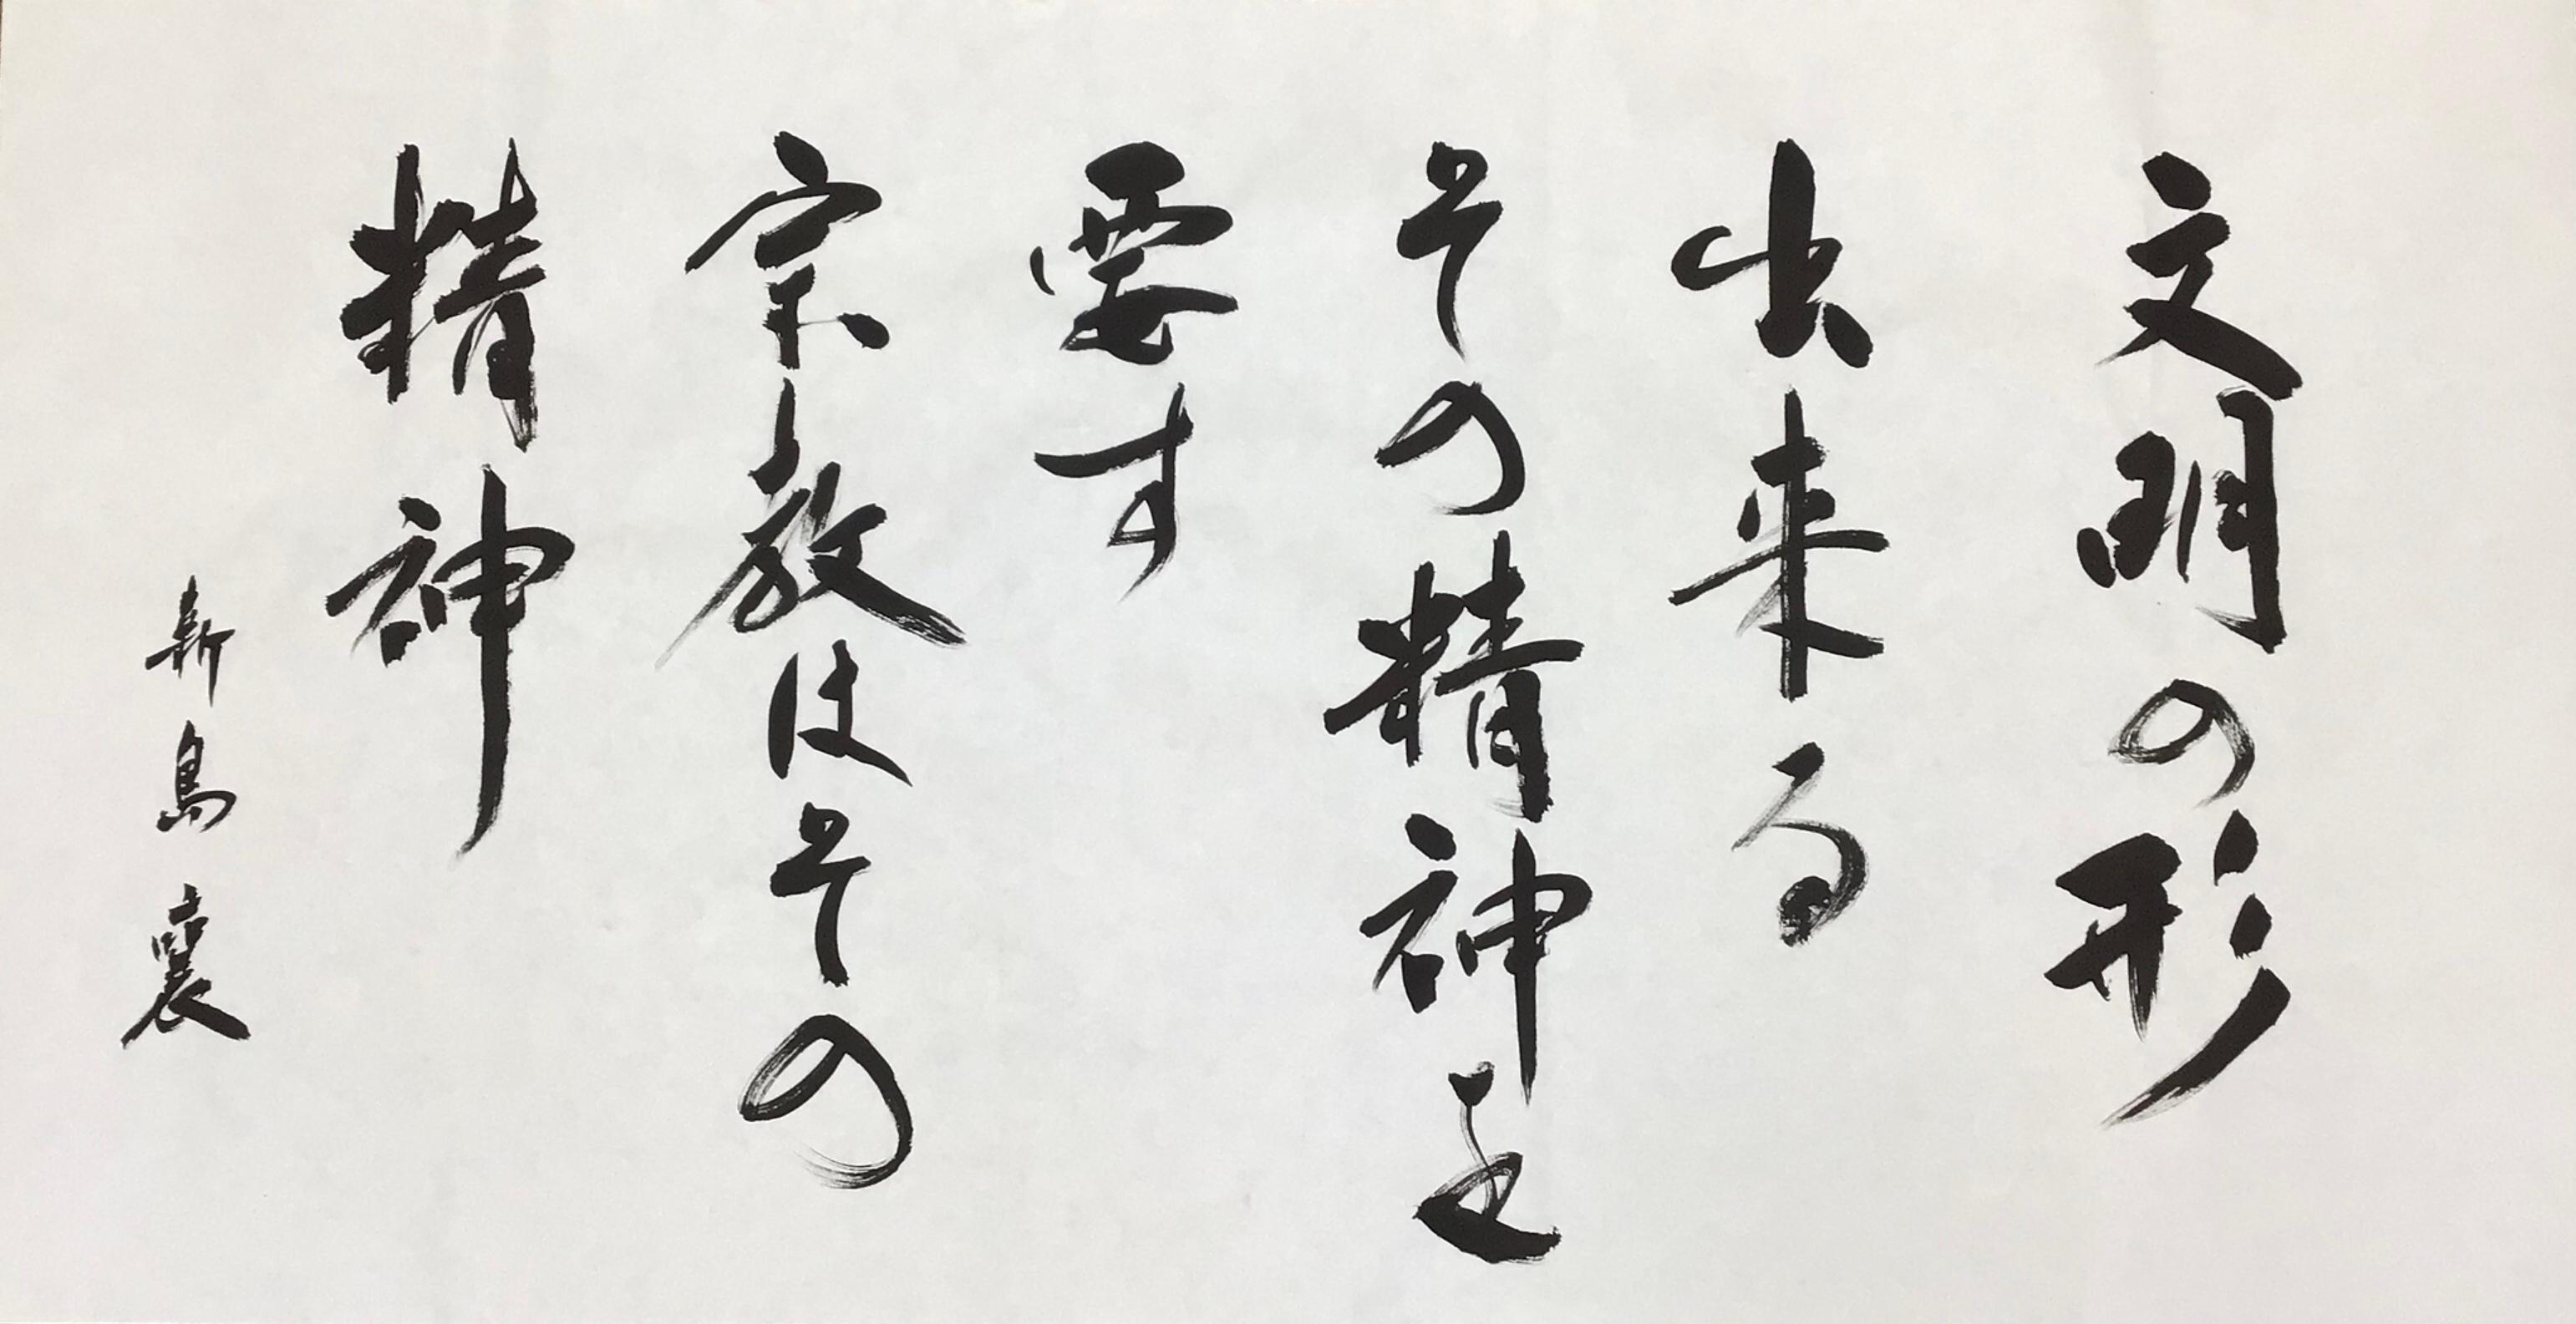 文明の形
出来る
その精神を
要す
宗教はその
精神
新島襄